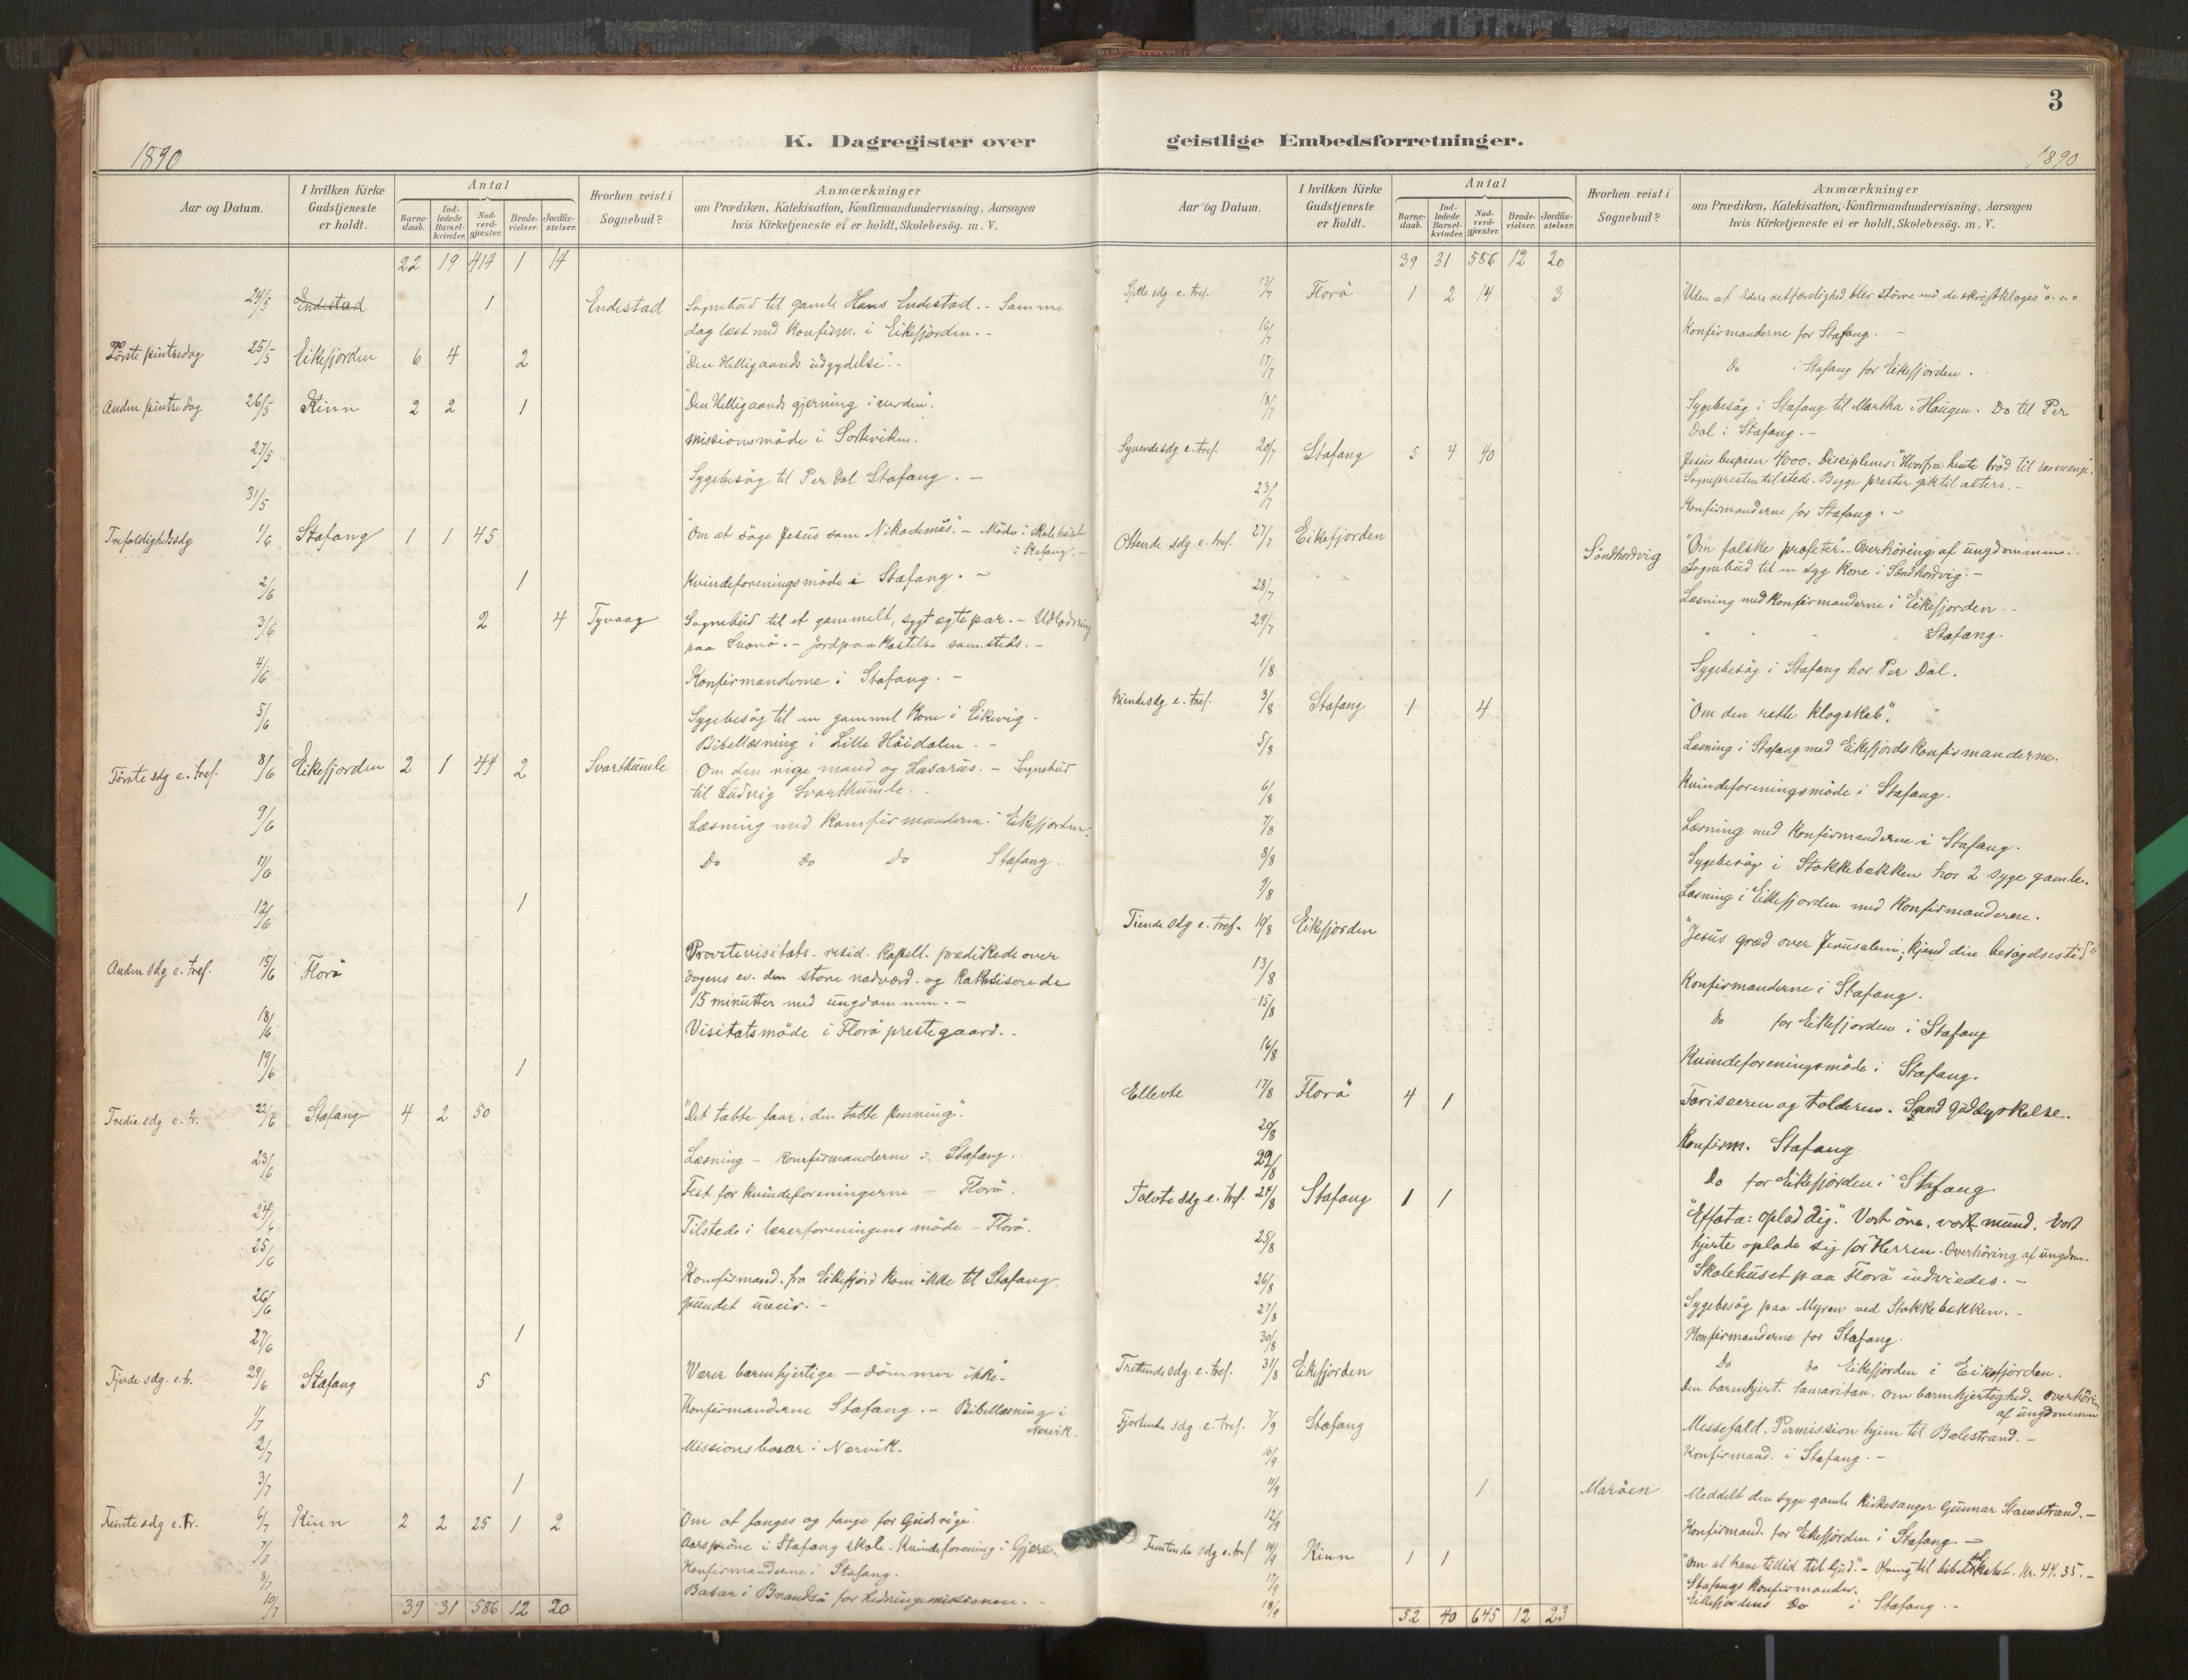 1890
K. Dagregister over
Aar og Datum.
I hvilken Kirke Gudstjeneste er holdt.
Antal
Barnedaab.
Indledede Barselkvinder.
Nadverdgjester.
Brudevielser.
Jordfæstelser.
Hvorhen reist i Sognebud?
Anmærkninger
om Prædiken, Katekisation, Konfirmandundervisning, Aarsagen
hvis Kirketjeneste ei er holdt, Skolebesög. m. V.
22 19 414 1 14
24/5 Endestad 1 Endestad Sognebud til gamle Hans Endestad. - Samme
dag læst med Konfirm. i Eikefjorden. -
Förste pintsedag 25/5 Eikefjorden 6 4 2 "Den Helligaands udgydelse". -
Anden pintsedag 26/5 Kinn 2 2 1 "Den Helligaands gjerning i verden".
27/5 Missionsmöde i
31/5 Sygebesög til Per Dal Stafang. -
Trefoldighedssdg 1/6 Stafang 1 1 45 "Om at söge Jesus som Nikodemus". - Möde i skolehuset
i Stafang. -
2/6 1 Kvindeforeningsmöde i Stafang. -
3/6 2 4 Tyvaag Sognebud til et gammelt, sygt egtepar. - Udlodning
paa Svanö. - Jordpaakastelse samsteds. -
4/6 Konfirmanderne i Stafang. -
5/6 Sygebesög til en gammel kone i Eikevig.
Bibellæsning i Lille Höidalen. -
Förste sdg e. tref. 8/6 Eikefjorden 2 1 44 2 Svarthumle Om den rige mand og Lasarus. - Sognebud
til Ludvig Svarthumle. -
9/6 Læsning med Konfirmanderne i Eikefjorden.
11/6 Do do Do Stafang.
12/6 1
Anden sdg e. tref. 15/6 Florö Provstevisitats. resid. Kapell. prædikede over
dagens ev. den store nadverd. og katekiserede
15 minutter med ungdommen. -
18/6 Visitatsmöde i Florö prestegaard. -
19/6 1
Tredie sdg e. tr. 22/6 Stafang 4 2 50 "Det tabte faar, den tabte penning".
23/6 Læsning - Konfirmanderne i Stafang.
Fest for kvindeforeningerne - Florö.
24/6 Tilstede i lærerforeningens möde - Florö.
25/6
26/6 Konfirmand. fra Eikefjord kom ikke til Stafang
grundet uveir. -
27/6 1
Fjerde sdg. e. tr. 29/6 Stafang 5 "Værer barmhjertige - dömmer ikke".
1/7 Konfirmanderne Stafang. - Bibellæsning i
Nærvik.
2/7 Missionsbasar i Nærvik.
3/7 1
Femte sdg e. tr. 6/7 Kinn 2 2 25 1 2 Om at fanges og fange for Guds rige.
7/7 Aarspröve i Stafang skole. Kvindeforening i
8/7 Konfirmanderne i Stafang.
10/7 Basar i Brandsö for Hedningemissionen. -
39 31 586 12 20
3
geistlige Embedsforretninger.
1890
Aar og Datum.
I hvilken Kirke Gudstjeneste er holdt.
Antal
Barnedaab.
Indledede Barselkvinder.
Nadverdgjester.
Brudevielser.
Jordfæstelser.
Hvorhen reist i Sognebud?
Anmærkninger
om Prædiken, Katekisation, Konfirmandundervisning, Aarsagen
hvis Kirketjeneste ei er holdt, Skolebesög. m. V.
39 31 586 12 20
Sjette sdg e. tref. 13/7 Florö 1 2 14 3 "Uden at Eders retfærdighed blir större end de skriftkloges"
16/7 Konfirmanderne for Stafang. -
17/7 Do i Stafang for Eikefjorden.
18/7 Sygebesög i Stafang til Martha i Haugen. Do til Per
Dal i Stafang. -
Syvende sdg e. tref. 20/7 Stafang 5 4 40 Jesus bespiser 4000. Disciplenes: "Hvorfra hente bröd til saa mange".
Sognepresten tilstede. Begge prester gik til alters. -
23/7 Konfirmanderne for Stafang. -
Ottende sdg e. tref. 27/7 Eikefjorden Söndhordvig "Om falske profeter". - Overhöring af ungdommen.
Sognebud til en syg kone i Söndhordvig. -
28/7 Læsning med Konfirmanderne i Eikefjorden. -
29/7 " " " Stafang.
1/8 Sygebesög i Stafang hos Per Dal.
Niende sdg e. tref. 3/8 Stafang 1 4 "Om den rette klogskab".
5/8 Læsning i Stafang med Eikefjords Konfirmanderne.
6/8 Kvindeforeningsmöde i Stafang.
7/8 Læsning med Konfirmanderne i Stafang.
8/8 Sygebesög i Stokkebækken hos 2 syge gamle.
9/8 Læsning i Eikefjorden med Konfirmanderne.
Tiende sdg e. tref. 10/8 Eikefjorden "Jesus græd over Jerusalem; kjend din besögelsestid"
13/8 Konfirmanderne i Stafang.
15/8 do for Eikefjorden i Stafang
16/8 Kvindeforeningsmöde i Stafang.
Ellevte 17/8 Florö 4 1 Fariseeren og tolderen. Sand Gudsdyrkelse.
20/8 Konfirm. Stafang
22/8 Do for Eikefjorden i Stafang
Tolvte sdg e. tref. 24/8 Stafang 1 1 "Effata: oplad dig". Vort öre, vort mund, vort
hjerte oplade sig for Herren. Overhöring af ungdom.
25/8 Skolehuset paa Florö indviedes. -
26/8 Sygebesög paa Myren ved Stokkebækken. -
27/8 Konfirmanderne for Stafang.
30/8 Do do Eikefjorden i Eikefjorden.
Trettende sdg. e. tref. 31/8 Eikefjorden Den barmhjert. Samaritan. Om barmhjertighed. Overhöring
af ungdommen
Fjortende sdg. e. tref. 7/9 Stafang Messefald. Permission hjem til Balestrand. -
10/9 Konfirmand. i Stafang. -
11/9 1 Maröen Meddelt den syge gamle kirkesanger Gunnar Stavestrand. -
12/9 Konfirmand. for Eikefjorden i Stafang -
Femtende sdg e. tref. 14/9 Kinn 1 1 "Om at have tillid til Gud". - Ofring til bibelselskabet. Kr. 44.35. -
17/9 Stafangs konfirmander.
18/9 Eikefjordens Do i Stafang. -
52 40 645 12 23